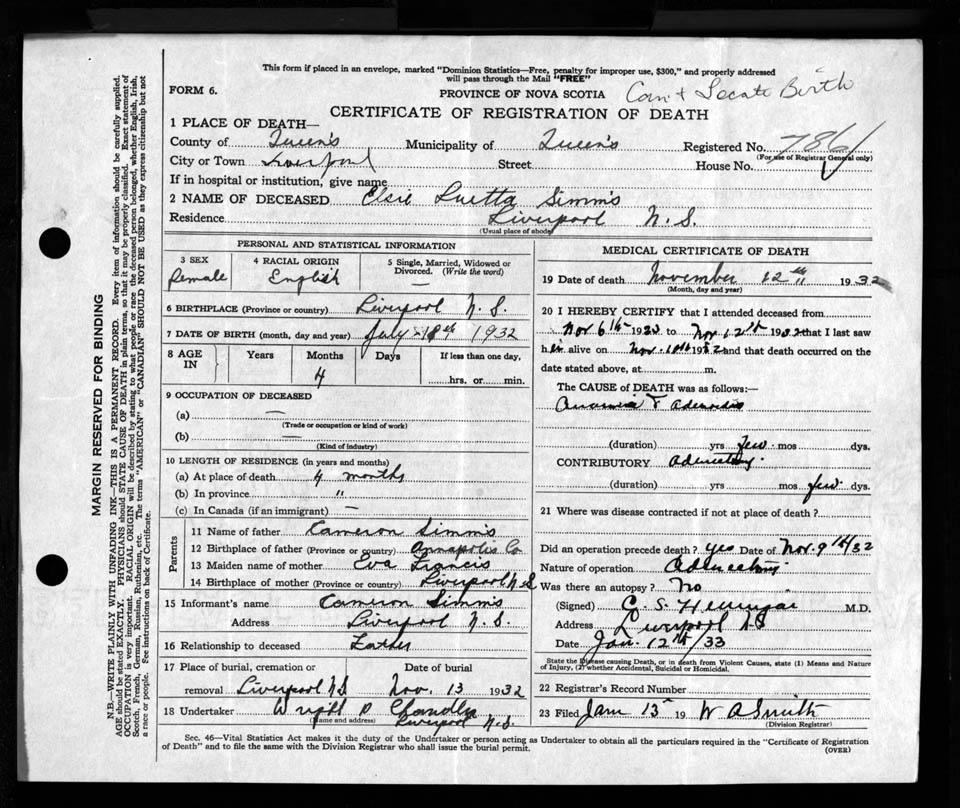 This form if placed in an envelope, marked "Dominion Statistics—Free, penalty for improper use, $300," and properly addressed
will pass through the Mail "FREE"
FORM 6.
PROVINCE OF NOVA SCOTIA
Can't Locate Birth
CERTIFICATE OF REGISTRATION OF DEATH
1 PLACE OF DEATH—
County of Queen's Municipality of Queen's Registered No. 786
(For use of Registrar General only)
City or Town Liverpool Street House No.
If in hospital or institution, give name
2 NAME OF DECEASED Elsie Luetta Simms
Residence Liverpool N.S.
(Usual place of abode)
PERSONAL AND STATISTICAL INFORMATION
3 SEX 4 RACIAL ORIGIN 5 Single, Married, Widowed or
Divorced. (Write the word)
Female English —
6 BIRTHPLACE (Province or country) Liverpool N.S.
7 DATE OF BIRTH (month, day and year) July 18th 1932
8 AGE IN Years Months Days If less than one day,
4 hrs. or min.
9 OCCUPATION OF DECEASED
(a) —
(Trade or occupation or kind of work)
(b) —
(Kind of industry)
10 LENGTH OF RESIDENCE (in years and months)
(a) At place of death 4 months
(b) In province "
(c) In Canada (if an immigrant) —
Parents
11 Name of father Cameron Simms
12 Birthplace of father (Province or country) Annapolis Co
13 Maiden name of mother Eva Francis
14 Birthplace of mother (Province or country) Liverpool N.S
15 Informant's name Cameron Simms
Address Liverpool N.S.
16 Relationship to deceased Father
17 Place of burial, cremation or Date of burial
removal Liverpool NS Nov. 13 1932
18 Undertaker Wright P Chandler
(Name and address) Liverpool N.S.
MEDICAL CERTIFICATE OF DEATH
19 Date of death November 12th 1932
(Month, day and year)
20 I HEREBY CERTIFY that I attended deceased from
Nov 6th 1932 to Nov. 12th 1932 that I last saw
her alive on Nov. 1932 and that death occurred on the
date stated above, at m.
The CAUSE of DEATH was as follows:—
(duration) yrs few mos dys.
CONTRIBUTORY
(duration) yrs mos few dys.
21 Where was disease contracted if not at place of death?
Did an operation precede death? yes Date of Nov. 9th/32
Nature of operation
Was there an autopsy? No
(Signed) C. S. M.D.
Address Liverpool NS
Date Jan. 12th/33
State the Disease causing Death, or in death from Violent Causes, state (1) Means and Nature
of Injury, (2) whether Accidental, Suicidal or Homicidal.
22 Registrar's Record Number
23 Filed Jan 13 19 W A Smith
(Division Registrar)
Sec. 46—Vital Statistics Act makes it the duty of the Undertaker or person acting as Undertaker to obtain all the particulars required in the "Certificate of Registration
of Death" and to file the same with the Division Registrar who shall issue the burial permit.
(OVER)
MARGIN RESERVED FOR BINDING
N.B.—WRITE PLAINLY WITH UNFADING INK—THIS IS A PERMANENT RECORD. Every item of information should be carefully supplied.
AGE should be stated EXACTLY. PHYSICIANS should STATE CAUSE OF DEATH in plain terms, so that it may be properly classified. Exact statement of
OCCUPATION is very important. RACIAL ORIGIN will be described by stating to what people or race the deceased person belonged, whether English, Irish,
Scotch, French, German, Russian, Ruthenian, etc. The terms "AMERICAN" or "CANADIAN" SHOULD NOT BE USED as they express citizenship but not
a race or people. See instructions on back of Certificate.